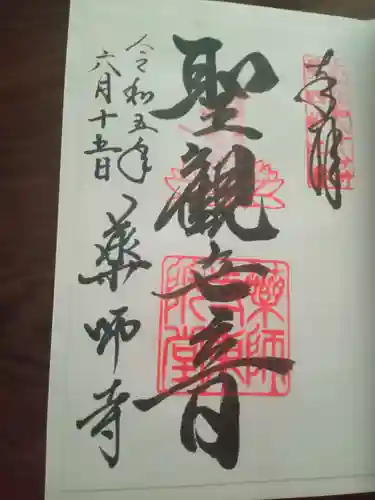 奉拝
聖観世音
薬師寺
令和五年
六月十五日